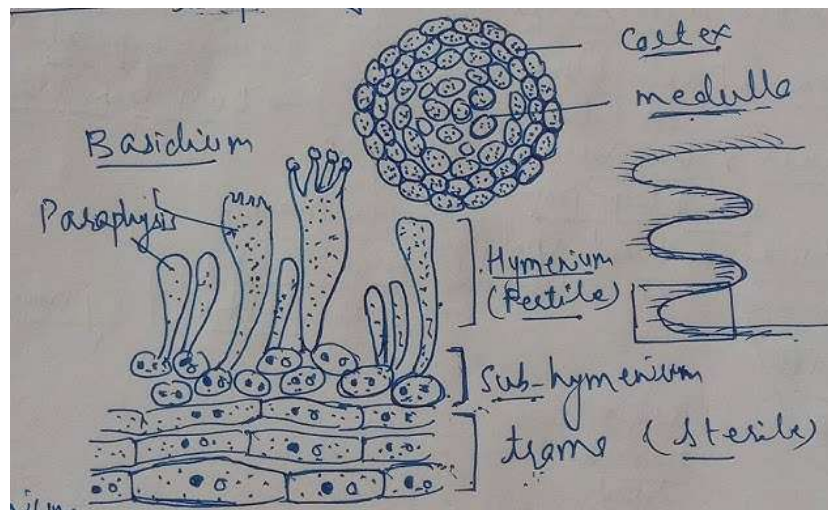 Cortex
medulla
Basidium
Paraphysis
Hymenium
(Fertile)
Sub-hymenium
trama (Sterile)